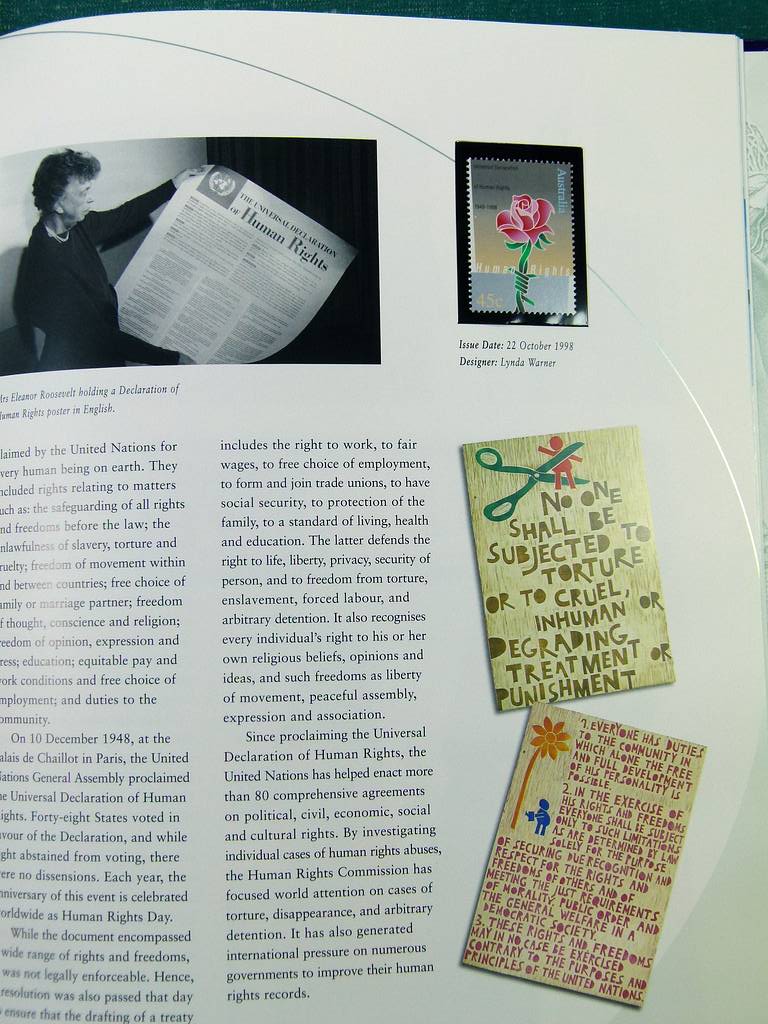 THE UNIVERSAL DECLARATION
OF Human Rights
Universal Declaration
of Human Rights
1948–1998
Australia
Human Rights
45c
Issue Date: 22 October 1998
Designer: Lynda Warner
Mrs Eleanor Roosevelt holding a Declaration of
Human Rights poster in English.
laimed by the United Nations for
very human being on earth. They
ncluded rights relating to matters
uch as: the safeguarding of all rights
nd freedoms before the law; the
nlawfulness of slavery, torture and
ruelty; freedom of movement within
nd between countries; free choice of
amily or marriage partner; freedom
f thought, conscience and religion;
reedom of opinion, expression and
ress; education; equitable pay and
ork conditions and free choice of
mployment; and duties to the
ommunity.
On 10 December 1948, at the
alais de Chaillot in Paris, the United
Nations General Assembly proclaimed
he Universal Declaration of Human
ights. Forty-eight States voted in
avour of the Declaration, and while
ght abstained from voting, there
ere no dissensions. Each year, the
nniversary of this event is celebrated
orldwide as Human Rights Day.
While the document encompassed
wide range of rights and freedoms,
was not legally enforceable. Hence,
resolution was also passed that day
o ensure that the drafting of a treaty
includes the right to work, to fair
wages, to free choice of employment,
to form and join trade unions, to have
social security, to protection of the
family, to a standard of living, health
and education. The latter defends the
right to life, liberty, privacy, security of
person, and to freedom from torture,
enslavement, forced labour, and
arbitrary detention. It also recognises
every individual's right to his or her
own religious beliefs, opinions and
ideas, and such freedoms as liberty
of movement, peaceful assembly,
expression and association.
Since proclaiming the Universal
Declaration of Human Rights, the
United Nations has helped enact more
than 80 comprehensive agreements
on political, civil, economic, social
and cultural rights. By investigating
individual cases of human rights abuses,
the Human Rights Commission has
focused world attention on cases of
torture, disappearance, and arbitrary
detention. It has also generated
international pressure on numerous
governments to improve their human
rights records.
NO ONE
SHALL BE
SUBJECTED TO
TORTURE
OR TO CRUEL,
INHUMAN OR
DEGRADING
TREATMENT OR
PUNISHMENT
1. EVERYONE HAS DUTIES
TO THE COMMUNITY IN
WHICH ALONE THE FREE
AND FULL DEVELOPMENT
OF HIS PERSONALITY IS
POSSIBLE.
2. IN THE EXERCISE OF
HIS RIGHTS AND FREEDOMS
EVERYONE SHALL BE SUBJECT
ONLY TO SUCH LIMITATIONS
AS ARE DETERMINED BY LAW
SOLELY FOR THE PURPOSE
OF SECURING DUE RECOGNITION AND
RESPECT FOR THE RIGHTS AND
FREEDOMS OF OTHERS AND OF
MEETING THE JUST REQUIREMENTS
OF MORALITY, PUBLIC ORDER AND
THE GENERAL WELFARE IN A
DEMOCRATIC SOCIETY.
3. THESE RIGHTS AND FREEDOMS
MAY IN NO CASE BE EXERCISED
CONTRARY TO THE PURPOSES AND
PRINCIPLES OF THE UNITED NATIONS.